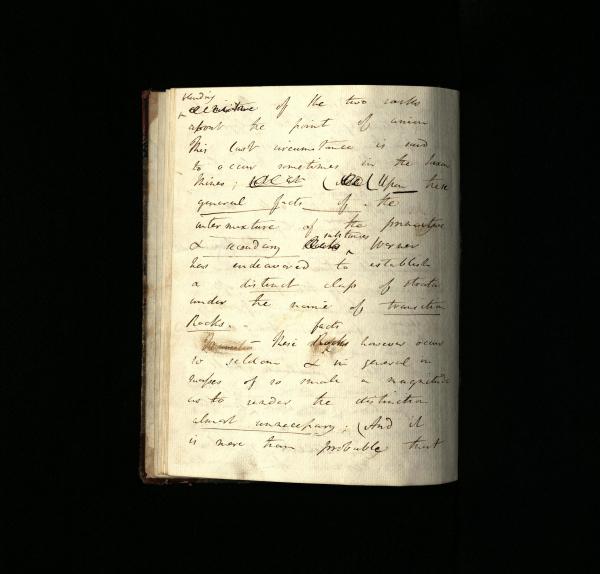 blending
of the two rocks
about the point of union
This last circumstance is said
to occur sometimes in the Saxon
Mines; (Upon these
general facts of the
intermixture of the primitive
substances
& secondary Werner
has endeavoured to establish
a distinct class of strata
under the name of transition
Rocks.
facts
These Rocks however occur
so seldom & in general in
masses of so small a magnitude
as to render the distinction
almost unnecessary; (And it
is more than probable that